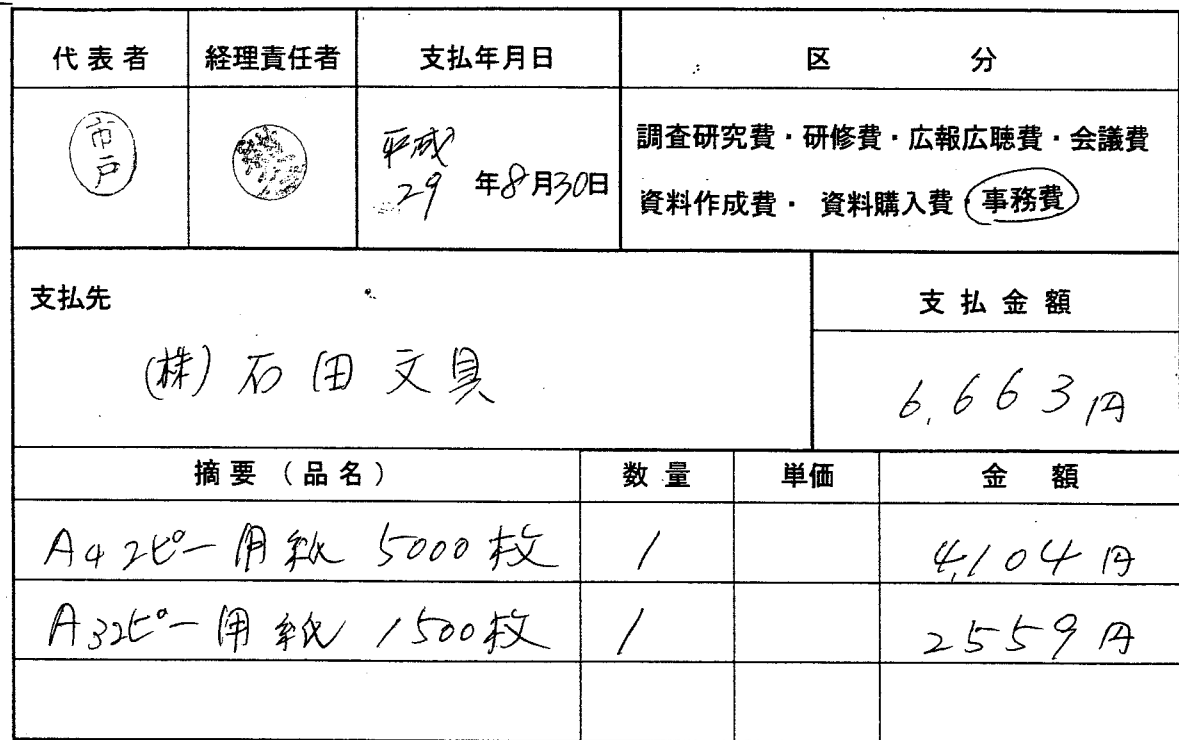 代表者 経理責任者 支払年月日 区 分
市戸 平成29年8月30日 調査研究費・研修費・広報広聴費・会議費
資料作成費・ 資料購入費・事務費
支払先 支払金額
(株)石田文具 6,663円
摘要(品名) 数量 単価 金 額
A4コピー用紙 5000枚 1 4,104円
A3コピー用紙 1500枚 1 2559円